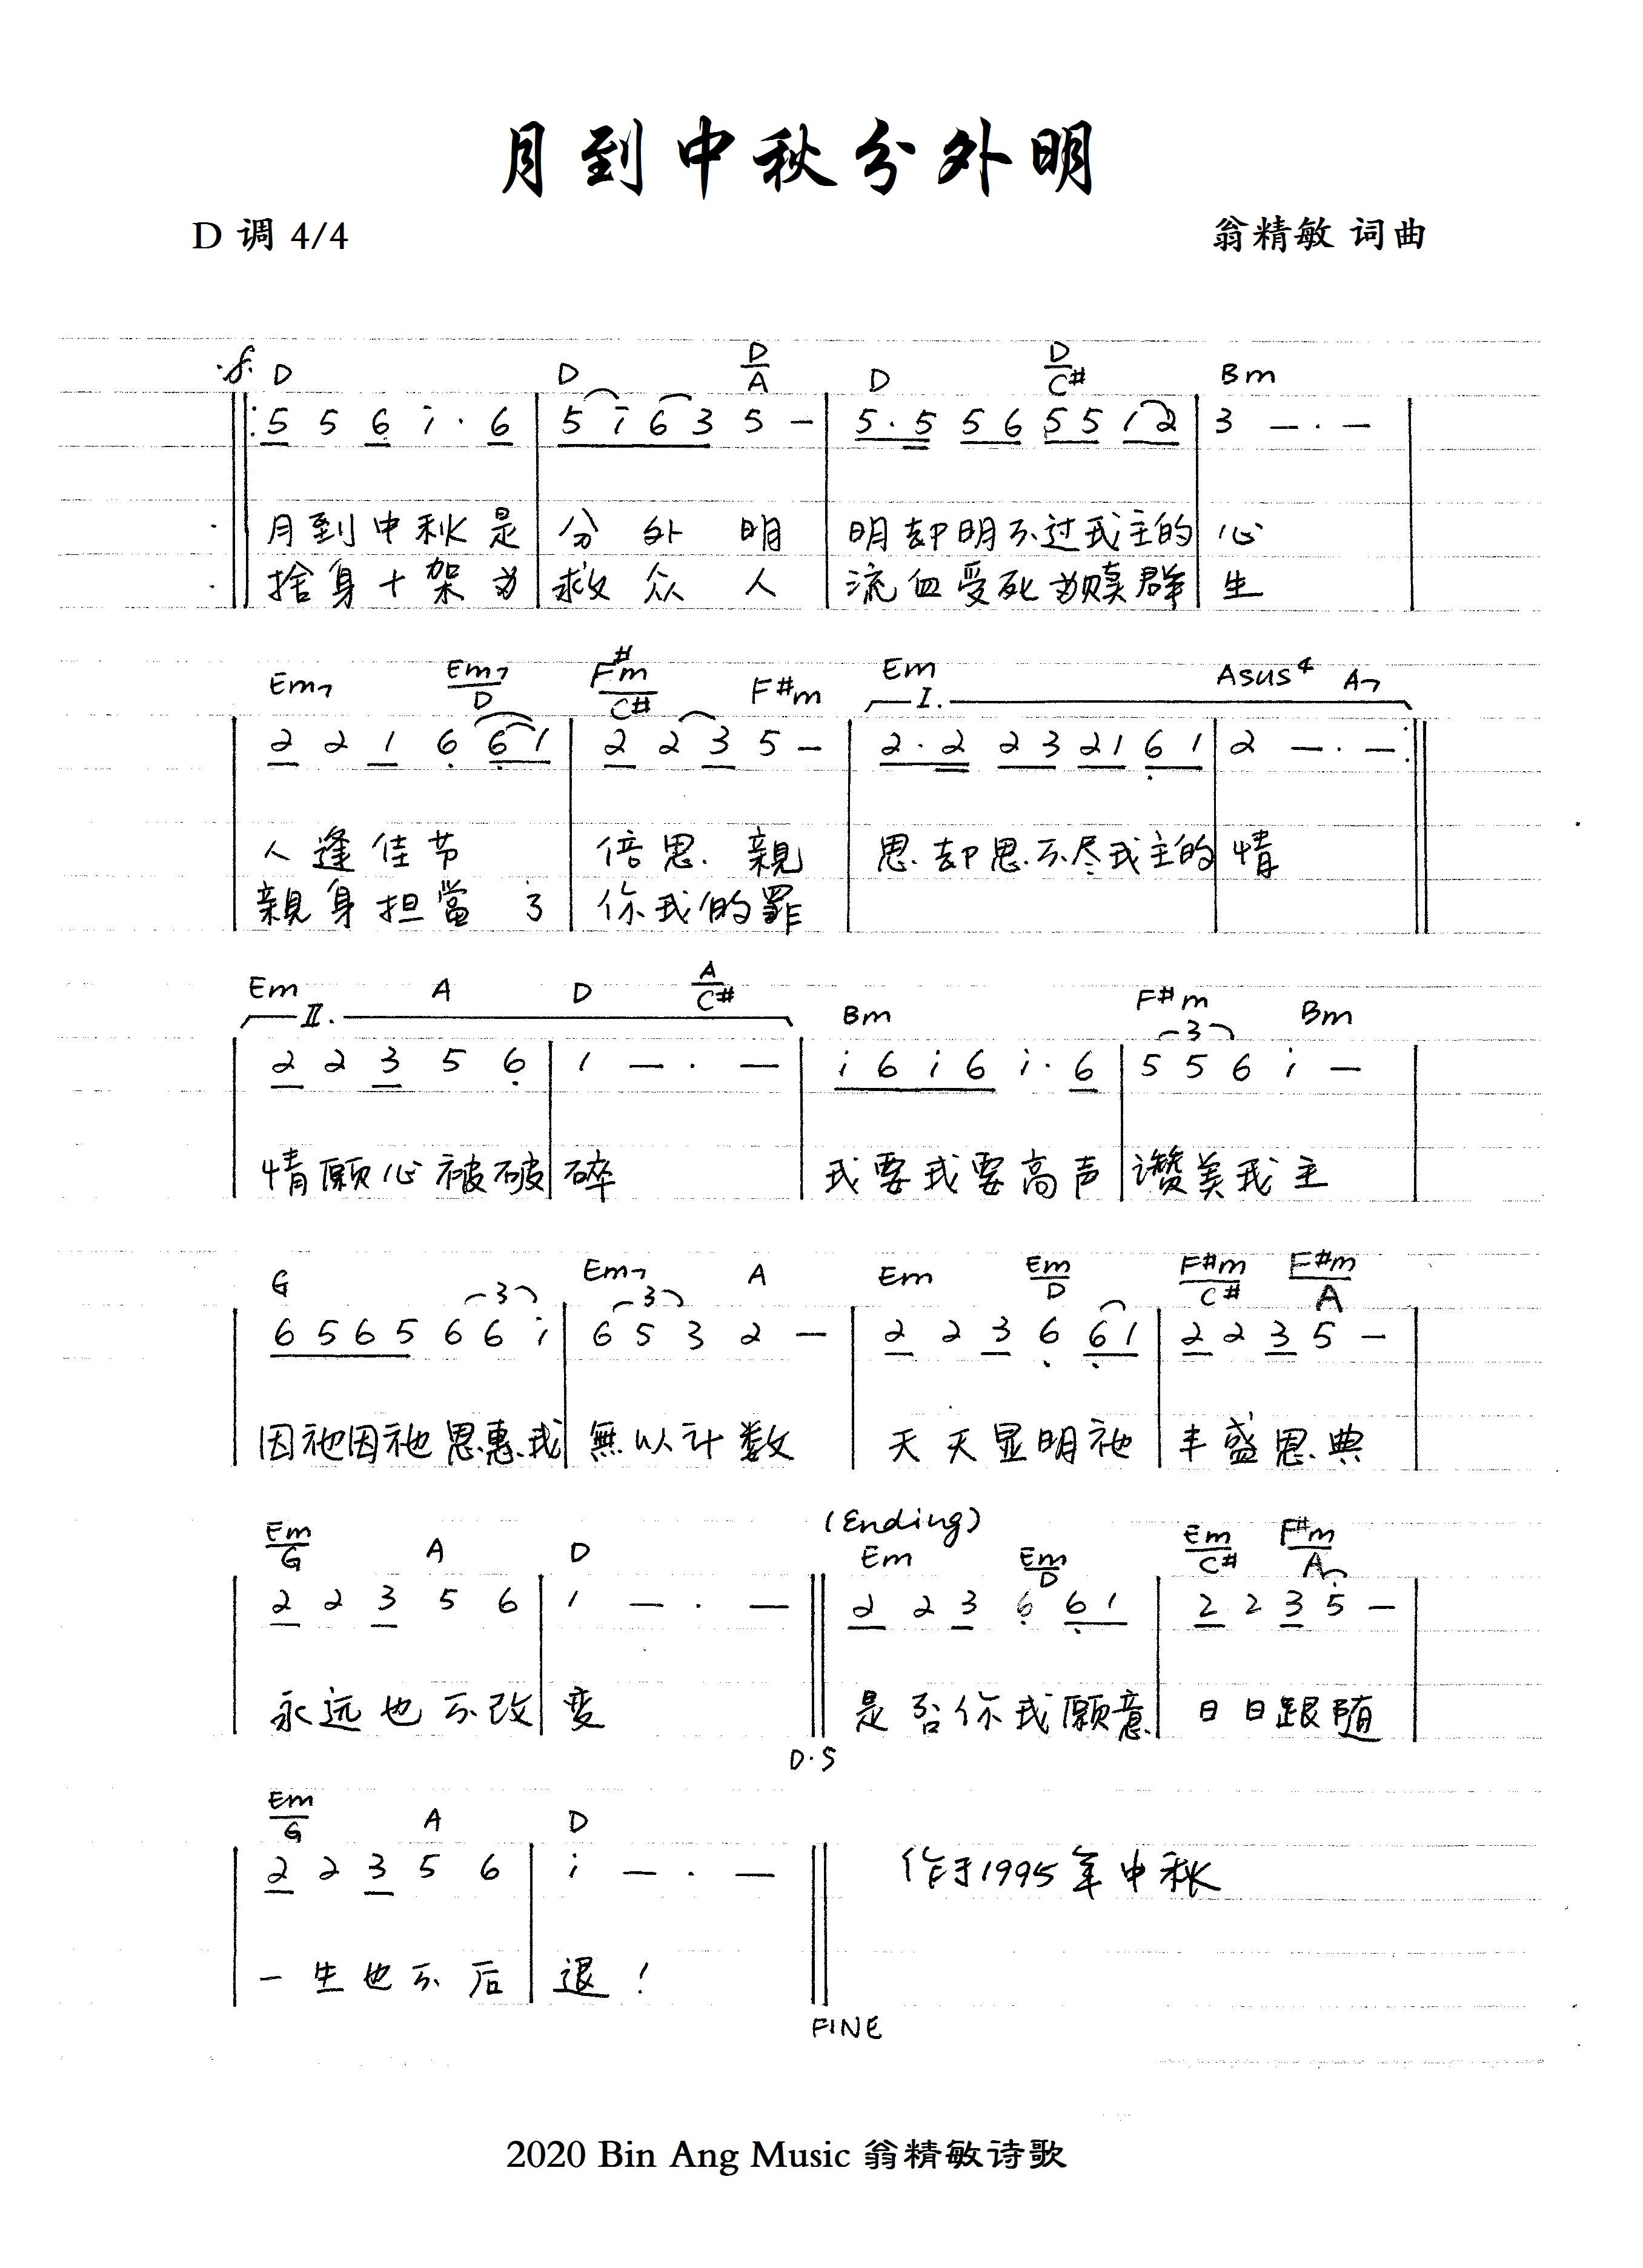 月到中秋分外明
D 调 4/4 翁精敏 词曲
D D D/A D D/C# Bm
5 5 6 i· 6 | 5 i 6 3 5 — | 5·5 5 6 5 5 1 2 | 3 — · —
月到中秋是 分外明 明却明不过我主的 心
捨身十架为 救众人 流血受死为赎群 生
Em7 Em7/D F#m/C# F#m Em Asus4 A7
I.
2 2 1 6 6 1 | 2 2 3 5 — | 2·2 2 3 2 1 6 1 | 2 — · —
人逢佳节 倍思親 思却思不尽我主的 情
親身担當了 你我的罪
Em A D A/C# Bm F#m Bm
II. 3
2 2 3 5 6 | 1 — · — | i 6 i 6 i· 6 | 5 5 6 i —
情願心被破 碎 我要我要高声 讚美我主
G Em7 A Em Em/D F#m/C# F#m/A
3 3
6 5 6 5 6 6 i | 6 5 3 2 — | 2 2 3 6 6 1 | 2 2 3 5 —
因祂因祂恩惠我 無以计数 天天显明祂 丰盛恩典
(Ending)
Em/G A D Em Em/D Em/C# F#m/A
2 2 3 5 6 | 1 — · — || 2 2 3 6 6 1 | 2 2 3 5 —
永远也不改 变 是否你我願意 日日跟随
D·S
Em/G A D
2 2 3 5 6 | i — · — || 作于1995年中秋
一生也不后 退！
FINE
2020 Bin Ang Music 翁精敏诗歌